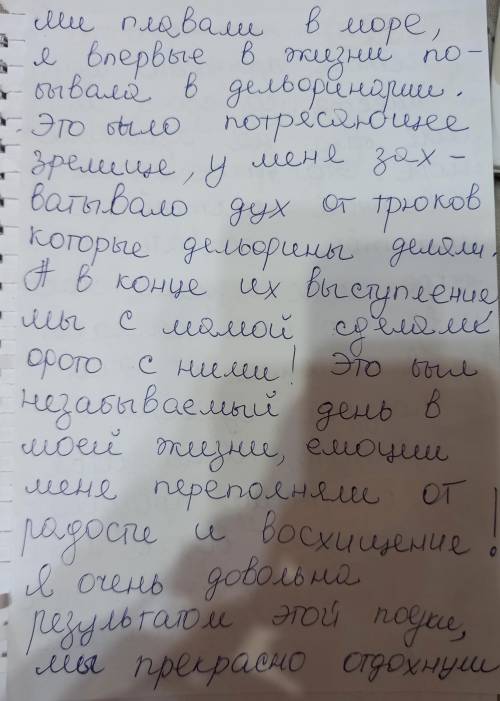 ми плавали в море,
я впервые в жизни по-
бывала в дельфинарии.
Это было потрясающее
зрелище, у меня зах-
ватывало дух от трюков
которые дельфины делали.
А в конце их выступление
мы с мамой сделали
фото с ними! Это был
незабываемый день в
моей жизни, емоции
меня переполняли от
радости и восхищение!
Я очень довольна
результатом этой поезки,
мы прекрасно отдохнули